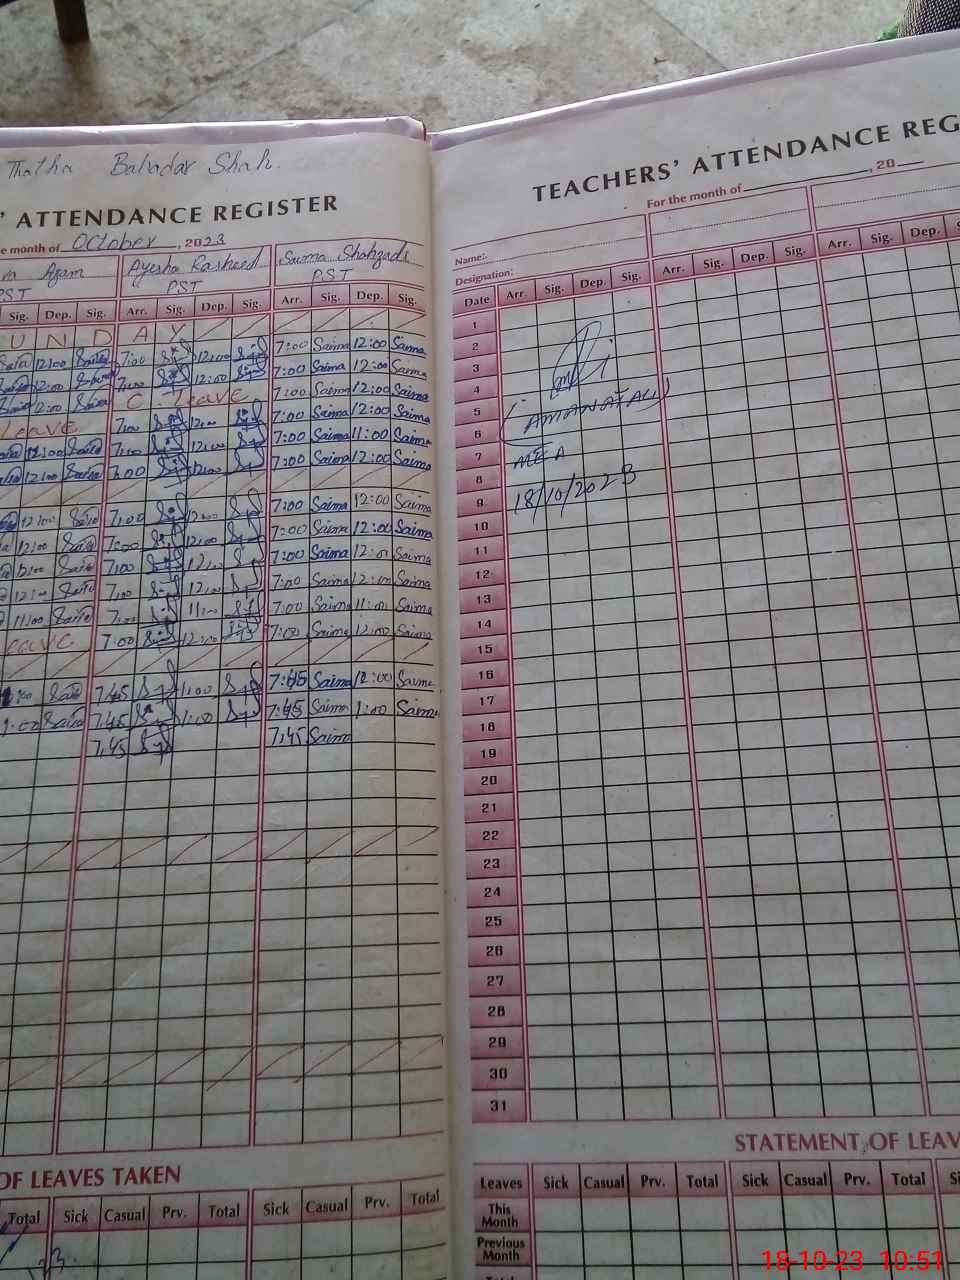 Thatha Bahadar Shah.
' ATTENDANCE REGISTER
e month of October, 2023
va Azam Ayesha Rasheed Saima Shahzadi
PST PST PST
Sig. Dep. Sig. Arr. Sig. Dep. Sig. Arr. Sig. Dep. Sig.
U N D A Y
12:00 7:00 12:00 7:00 Saima 12:00 Saima
12:00 7:00 12:00 7:00 Saima 12:00 Saima
12:00 C Leave 7:00 Saima 12:00 Saima
Leave 7:00 12:00 7:00 Saima 12:00 Saima
12:00 7:00 12:00 7:00 Saima 11:00 Saima
12:00 7:00 12:00 7:00 Saima 12:00 Saima
12:00 7:00 12:00 7:00 Saima 12:00 Saima
12:00 7:00 12:00 7:00 Saima 12:00 Saima
12:00 7:00 12:00 7:00 Saima 12:00 Saima
12:00 7:00 12:00 7:00 Saima 12:00 Saima
11:00 7:00 11:00 7:00 Saima 11:00 Saima
Leave 7:00 12:00 7:00 Saima 12:00 Saima
:00 7:45 1:00 7:45 Saima 12:00 Saima
1:00 7:45 1:00 7:45 Saima 1:00 Saima
7:45 7:45 Saima
OF LEAVES TAKEN
Total Sick Casual Prv. Total Sick Casual Prv. Total
TEACHERS' ATTENDANCE REG
For the month of , 20
Name:
Designation:
Date Arr. Sig. Dep. Sig. Arr. Sig. Dep. Sig. Arr. Sig. Dep. S
1
2
3
4
5
6
7
8
9
10
11
12
13
14
15
16
17
18
19
20
21
22
23
24
25
26
27
28
29
30
31
(AMANAT ALI)
MEA
18/10/2023
STATEMENT OF LEAV
Leaves Sick Casual Prv. Total Sick Casual Prv. Total Si
This Month
Previous Month
Total
18-10-23 10:51